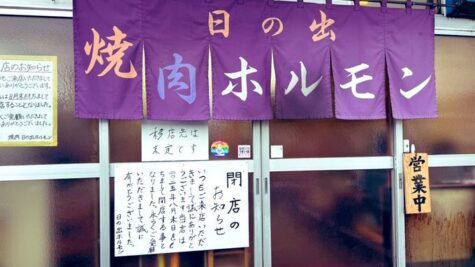 日の出
焼肉ホルモン
店のお知らせ
移店先は
未定です
閉店の
お知らせ
いつもご来店いただ
きまして誠にありがと
うございます 当店は
二〇二五年八月末日を
もちまして閉店する事と
なりました。永らくご愛顧
いただきまして誠に
有がとうございました。
日の出ホルモン
営業中
焼肉 日の出ホルモン